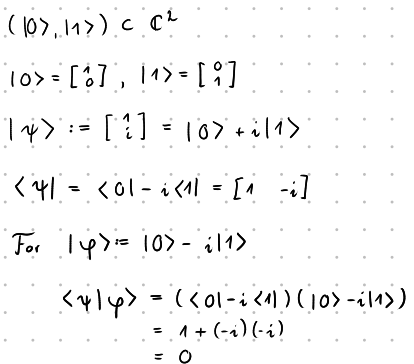 (|0>, |1>) ⊂ ℂ²
|0> = [1 0], |1> = [0 1]
|ψ> := [1 i] = |0> + i|1>
<ψ| = <0| - i<1| = [1 -i]
For |φ> := |0> - i|1>
<ψ|φ> = (<0| - i<1|)(|0> - i|1>)
= 1 + (-i)(-i)
= 0